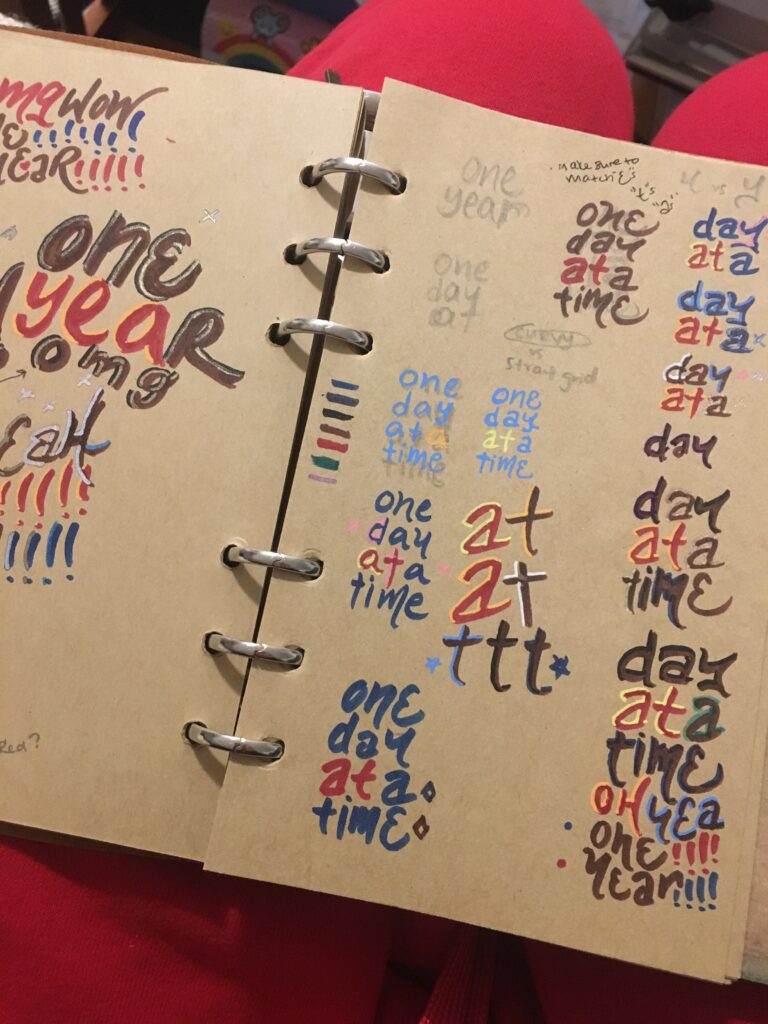 omg wow
!!!!!!
YEaR!!!!!
one
year
omg
YEaH
!!!!!
!!!!!
Red?
one
year
one
day
at
curvy
vs
strait grid
make sure to
match E's
"t's"
y vs y
one
day
at a
time
one
day
at a
time
one
day
at a
time
one
day
at a
time
at
at
ttt
one
day
at a
time
day
at a
day
at a
day
at a
day
day
at a
time
day
at a
time
OH yEa
one !!!!
year!!!